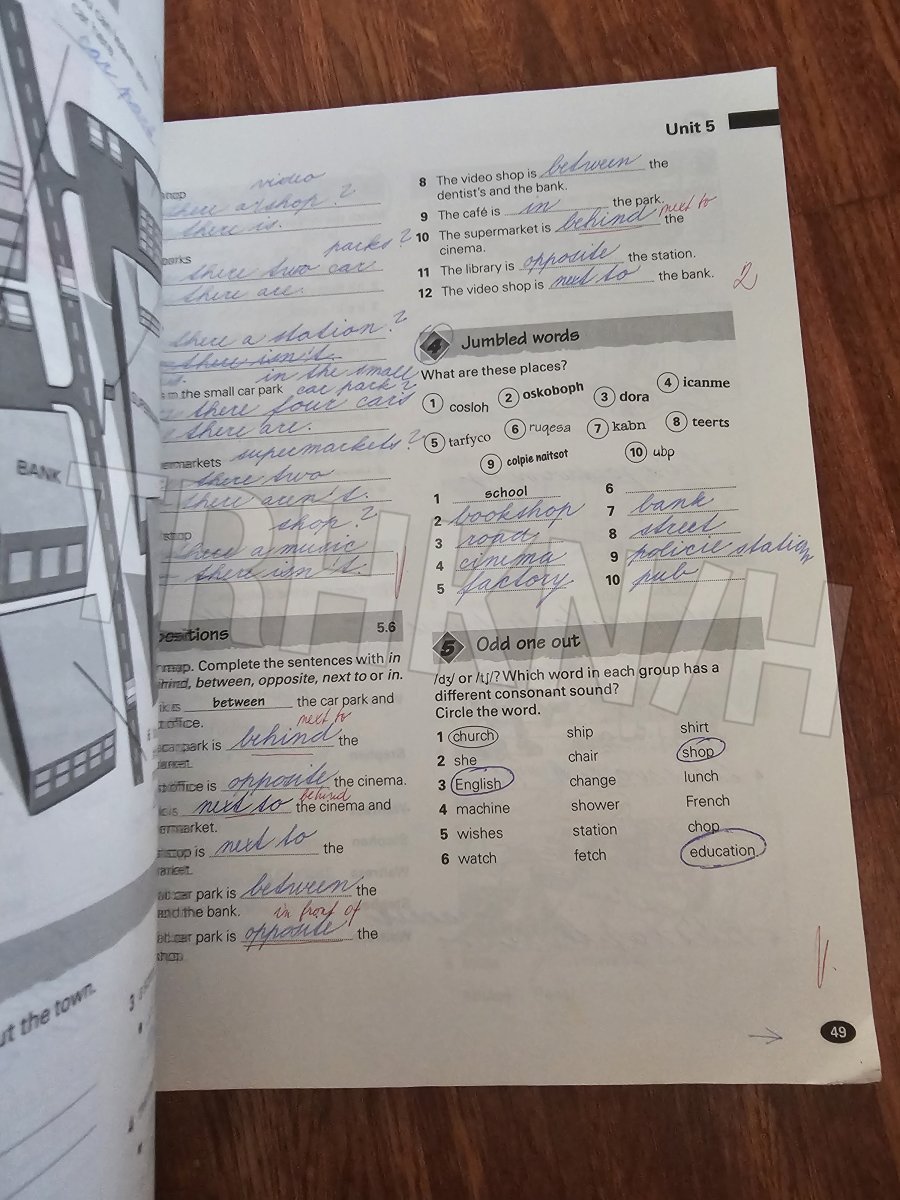 car park
BANK
ut the town.
Unit 5
video
there a shop ?
there is.
parks ?
there two car
there are.
there a station ?
there isn't.
in the small
in the small car park car park ?
there four cars
there are.
supermarkets ?
there two
there aren't.
shop ?
there a music
there isn't.
5.6
map. Complete the sentences with in
between, opposite, next to or in.
is between the car park and
office.
next to
car park is behind the
office is opposite the cinema.
behind
is next to the cinema and
is next to the
car park is between the
and the bank. in front of
car park is opposite the
8 The video shop is between the
dentist's and the bank.
9 The café is in the park.
next to
10 The supermarket is behind the
cinema.
11 The library is opposite the station.
12 The video shop is next to the bank.
2
4 Jumbled words
What are these places?
1 cosloh 2 oskoboph 3 dora 4 icanme
5 tarfyco 6 ruqesa 7 kabn 8 teerts
9 colpie naitsot 10 ubp
1 school
2 bookshop
3 road
4 cinema
5 factory
6
7 bank
8 street
9 policie station
10 pub
5 Odd one out
/dʒ/ or /tʃ/? Which word in each group has a
different consonant sound?
Circle the word.
1 church ship shirt
2 she chair shop
3 English change lunch
4 machine shower French
5 wishes station chop
6 watch fetch education
49